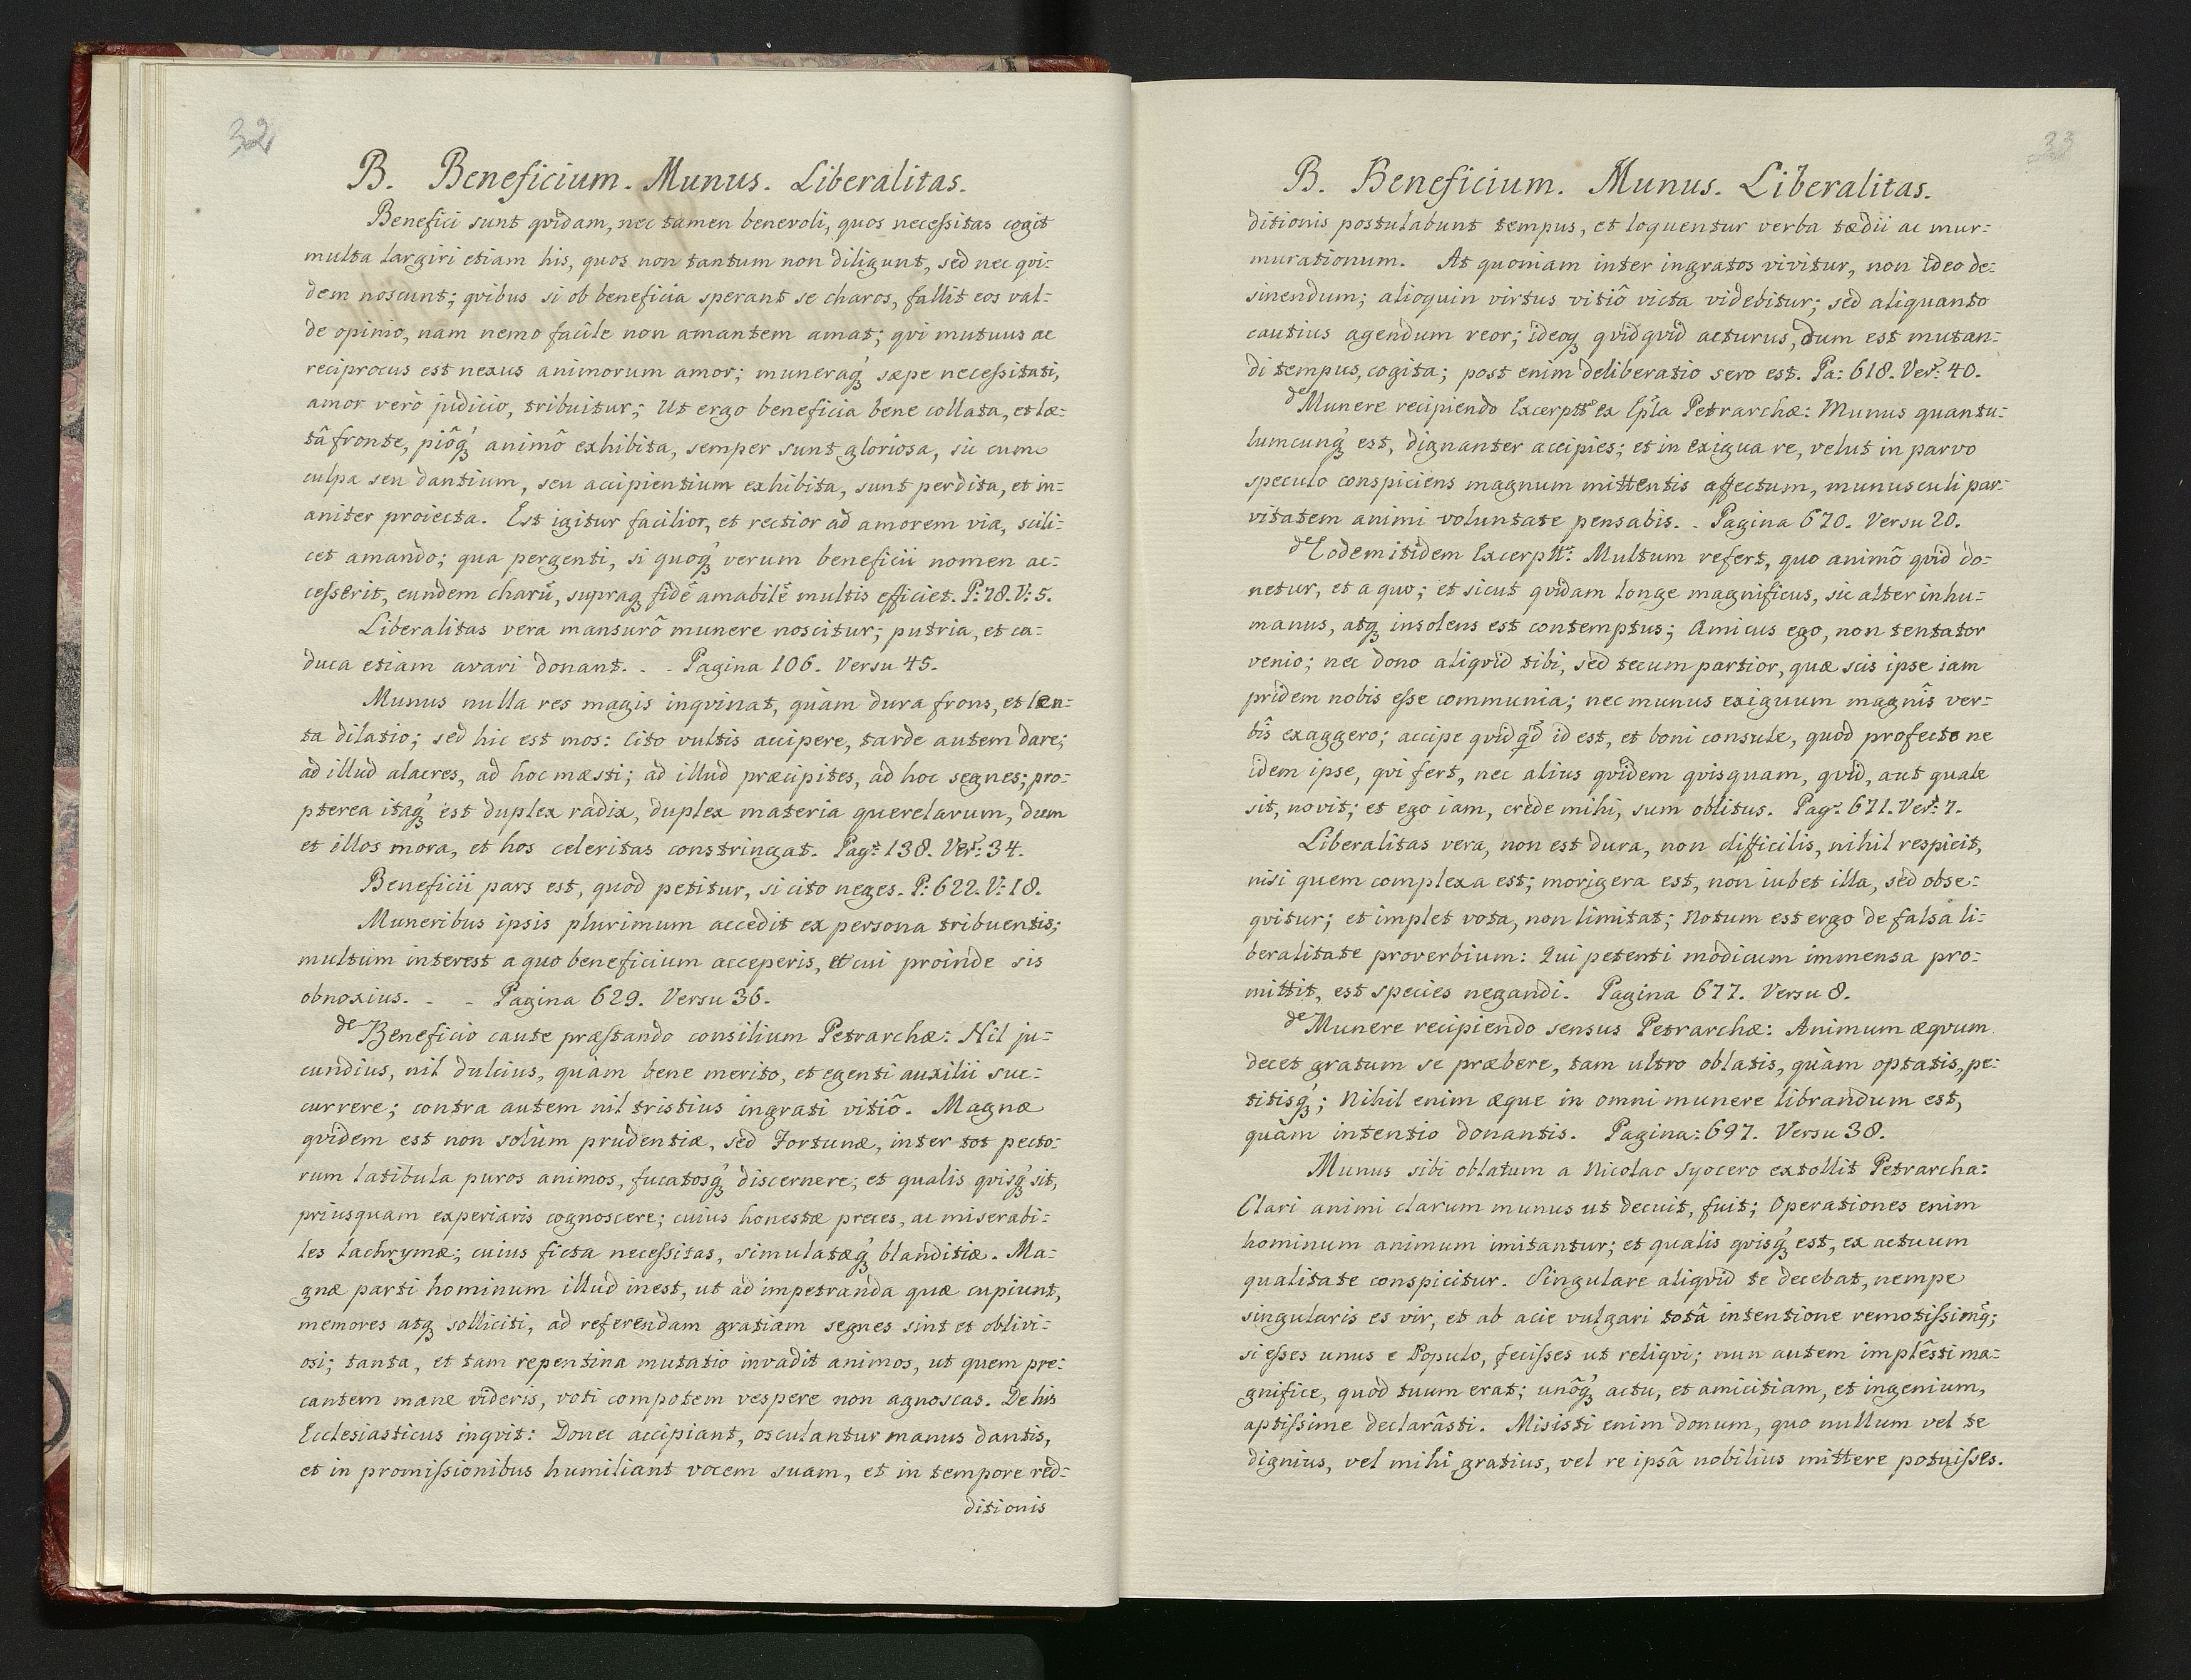 32
B. Beneficium. Munus. Liberalitas.
Benefici sunt qvidam, nec tamen benevoli, quos neceſsitas cogit
multa largiri etiam his, quos non tantum non diligunt, sed nec qvi-
dem noscunt; qvibus si ob beneficia sperant se charos, fallit eos val-
de opinio, nam nemo facile non amantem amat; qvi mutuus ac
reciprocus est nexus animorum amor; muneraq́ꝫ sæpe neceſsitati,
amor verò judicio, tribuitur; Ut ergo beneficia bene collata, et læ-
tâ fronte, piôq́ꝫ animô exhibita, semper sunt gloriosa, sic cum
culpa seu dantium, seu accipientium exhibita, sunt perdita, et in-
aniter proiecta. Est igitur facilior, et rectior ad amorem via, scili-
cet amando; qua pergenti, si quoq́ꝫ verum beneficii nomen ac-
ceſserit, eundem charū, supraqꝫ fidē amabilē multis efficiet. P: 78. V: 5.
Liberalitas vera mansurô munere noscitur; putria, et ca-
duca etiam avari donant. - - Pagina 106. Versu 45.
Munus nulla res magis inqvinat, quàm dura frons, et len-
ta dilatio; sed hic est mos: Cito vultis accipere, tarde autem dare;
ad illud alacres, ad hoc mæsti; ad illud præcipites, ad hoc segnes; pro-
pterea itaq́ꝫ est duplex radix, duplex materia querelarum, dum
et illos mora, et hos celeritas constringat. Pagᵃ: 138. Verˢ: 34.
Beneficii pars est, quod petitur, si cito neges. P: 622. V: 18.
Muneribus ipsis plurimum accedit ex persona tribuentis;
multum interest a quo beneficium acceperis, et cui proinde sis
obnoxius. - - Pagina 629. Versu 36.
de Beneficio caute præstando consilium Petrarchæ: Nil ju-
cundius, nil dulcius, quam bene merito, et egenti auxilii suc-
currere; contra autem nil tristius ingrati vitiô. Magnæ
qvidem est non solùm prudentiæ, sed Fortunæ, inter tot pecto-
rum latibula puros animos, fucatosq́ꝫ discernere; et qualis qvisq́ꝫ sit,
priusquam experiaris cognoscere; cuius honestæ preces, ac miserabi-
les lachrymæ; cuius ficta neceſsitas, simulatæq́ꝫ blanditiæ. Ma-
gnæ parti hominum illud inest, ut ad impetranda quæ cupiunt,
memores atqꝫ solliciti, ad referendam gratiam segnes sint et oblivi-
osi; tanta, et tam repentina mutatio invadit animos, ut quem pre-
cantem mane videris, voti compotem vespere non agnoscas. De his
Ecclesiasticus inqvit: Donec accipiant, osculantur manus dantis,
et in promiſsionibus humiliant vocem suam, et in tempore red-
ditionis
33
B. Beneficium. Munus. Liberalitas.
ditionis postulabunt tempus, et loquentur verba tædii ac mur-
murationum. At quoniam inter ingratos vivitur, non ideo de-
sinendum; alioquin virtus vitiô victa videbitur; sed aliquanto
cautius agendum reor; ideoqꝫ qvidqvid acturus, dum est mutan-
di tempus, cogita; post enim deliberatio sero est. Pa: 618. Verˢ: 40.
de Munere recipiendo Excerptᵉ ex Ep̃la Petrarchæ: Munus quantu-
lumcunq́ꝫ est, dignanter accipies; et in exigua re, velut in parvo
speculo conspiciens magnum mittentis affectum, munusculi par-
vitatem animi voluntate pensabis. - Pagina 670. Versu 20.
de Eodem itidem Excerptᵗ: Multum refert, quo animô qvid do-
netur, et a quo; et sicut qvidam longe magnificus, sic alter inhu-
manus, atqꝫ insolens est contemptus; Amicus ego, non tentator
venio; nec dono aliqvid tibi, sed tecum partior, quæ scis ipse iam
pridem nobis eſse communia; nec munus exiguum magnîs ver-
bîs exaggero; accipe qvid qd̃ id est, et boni consule, quod profecto ne
idem ipse, qvi fert, nec alius qvidem qvisquam, qvid, aut quale
sit, novit; et ego iam, crede mihi, sum oblitus. Pagᵃ: 671. Verˢ: 7.
Liberalitas vera, non est dura, non difficilis, nihil respicit,
nisi quem complexa est; morigera est, non iubet illa, sed obse-
qvitur; et implet vota, non limitat; Notum est ergo de falsa li-
beralitate proverbium: Qui petenti modicum immensa pro-
mittit, est species negandi. Pagina 677. Versu 8.
de Munere recipiendo sensus Petrarchæ: Animum æqvum
decet gratum se præbere, tam ultro oblatis, quàm optatis, pe-
titisq́ꝫ; Nihil enim æque in omni munere librandum est,
quàm intentio donantis. Pagina: 697. Versu 38.
Munus sibi oblatum a Nicolao Syocero extollit Petrarcha:
Clari animi clarum munus ut decuit, fuit; Operationes enim
hominum animum imitantur; et qualis qvisq́ꝫ est, ex actuum
qualitate conspicitur. Singulare aliqvid te decebat, nempe
singularis es vir, et ab acie vulgari totâ intentione remotiſsimq̃;
si eſses unus e Populo, feciſses ut reliqvi; nun autem implêsti ma-
gnifice, quod tuum erat; unôq́ꝫ actu, et amicitiam, et ingenium,
aptiſsime declarâsti. Misisti enim donum, quo nullum vel te
dignius, vel mihi gratius, vel re ipsâ nobilius mittere potuiſses.